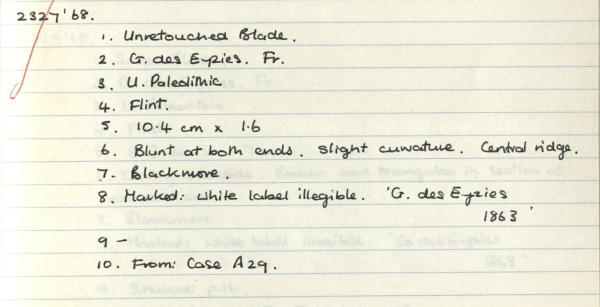 2327'68.
1. Unretouched Blade.
2. G. des Eyzies. Fr.
3. U. Paleolithic
4. Flint.
5. 10.4 cm x 1.6
6. Blunt at both ends. slight curvature. Central ridge.
7. Blackmore.
8. Marked: white label illegible. 'G. des Eyzies
1863'
9 -
10. From: Case A29.